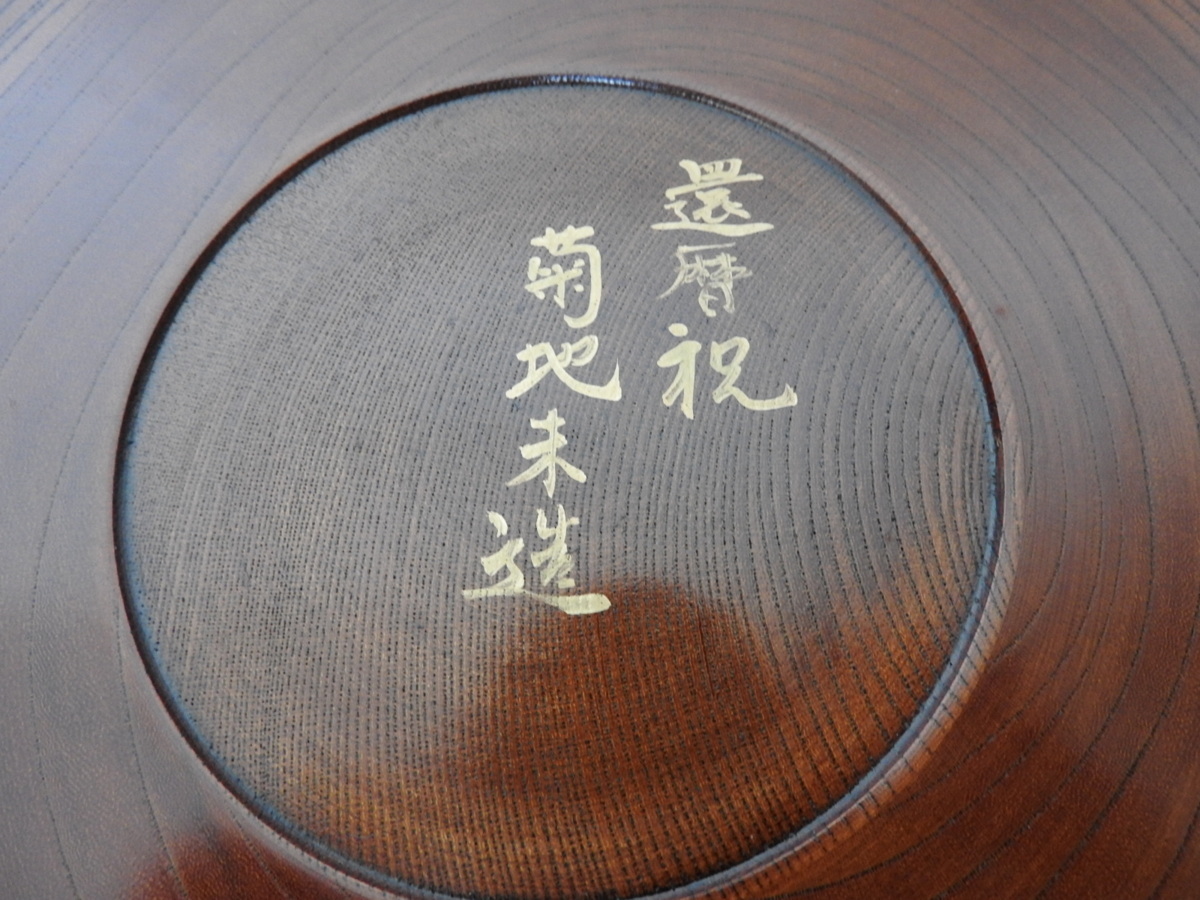 還暦祝
菊地未造